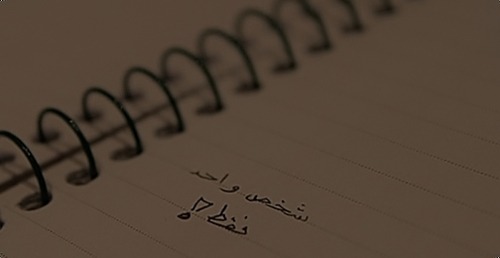 شخص واحد
فقط ؟!